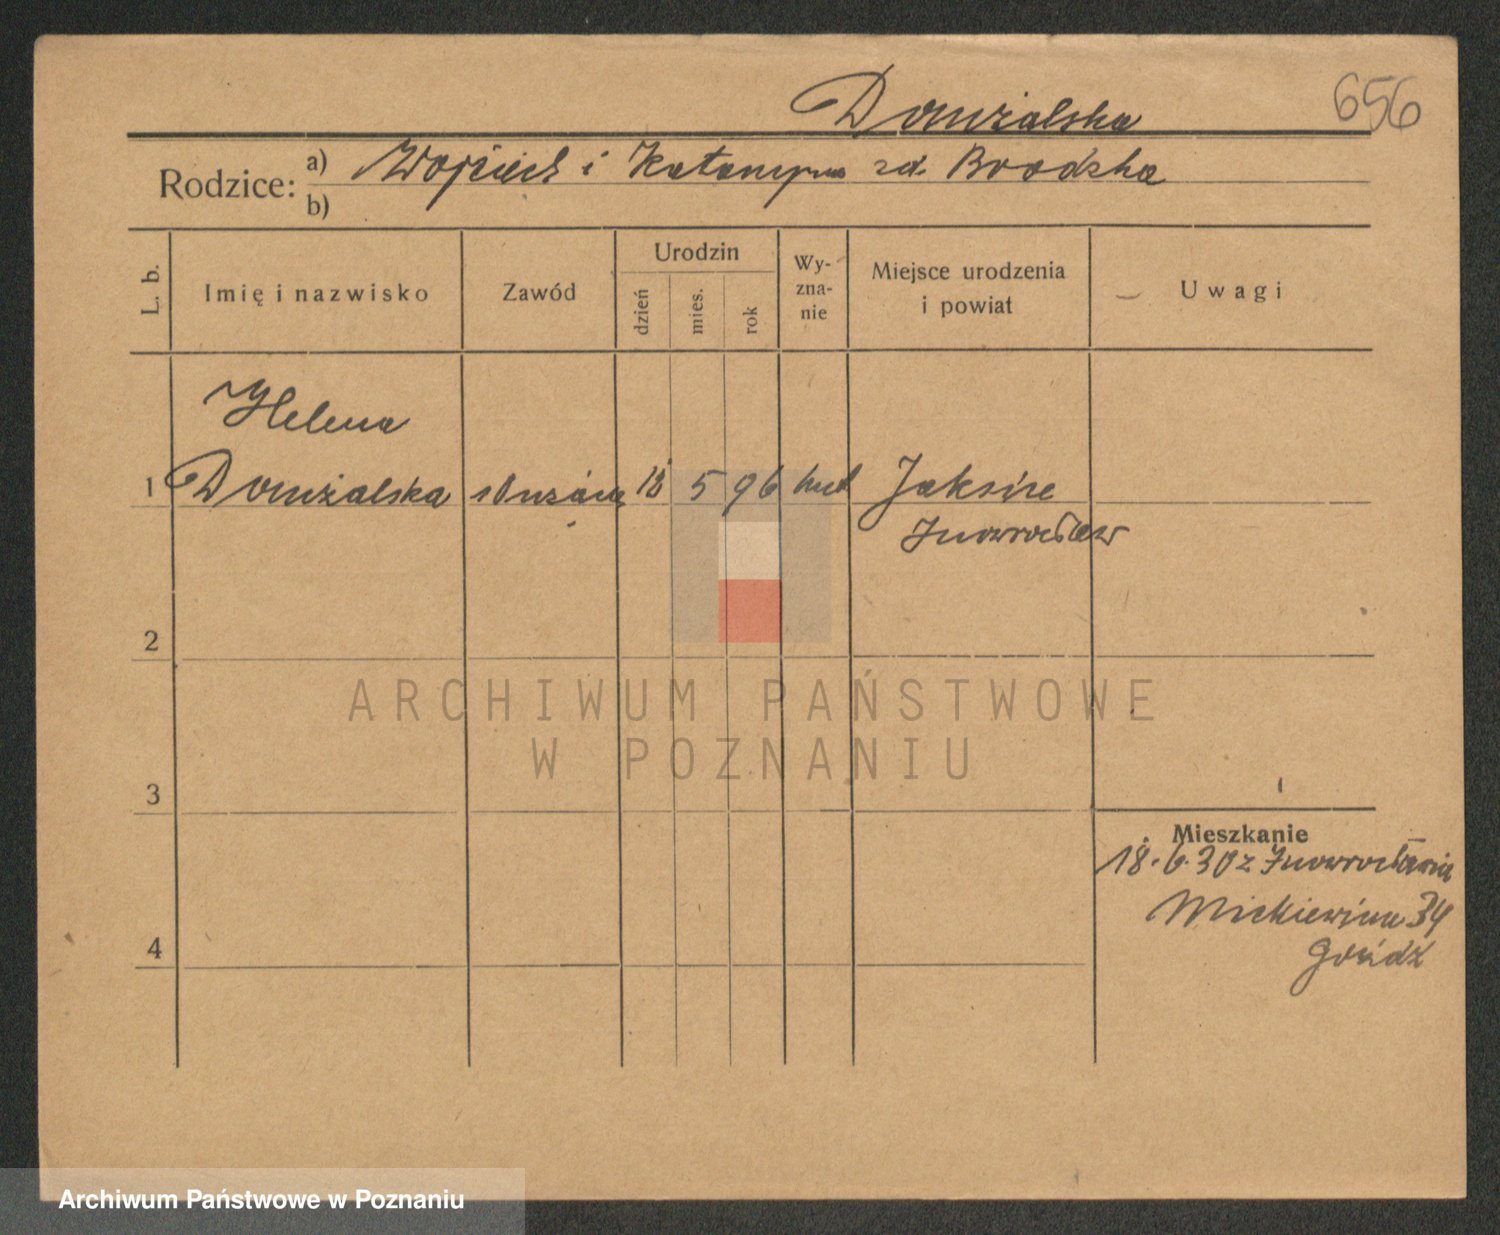 Domżalska 656
Rodzice: a) Wojciech i Katarzyna zd. Brodzka
b)
L. b. Imię i nazwisko Zawód Urodzin dzień mies. rok Wy-zna-nie Miejsce urodzenia i powiat Uwagi
Helena
1 Domżalska służąca 18 5 96 kat Jaksice
Inowrocław
2
ARCHIWUM PAŃSTWOWE
W POZNANIU
3
Mieszkanie
18.6.30 z Inowrocławia
Mickiewicza 34
4
Archiwum Państwowe w Poznaniu